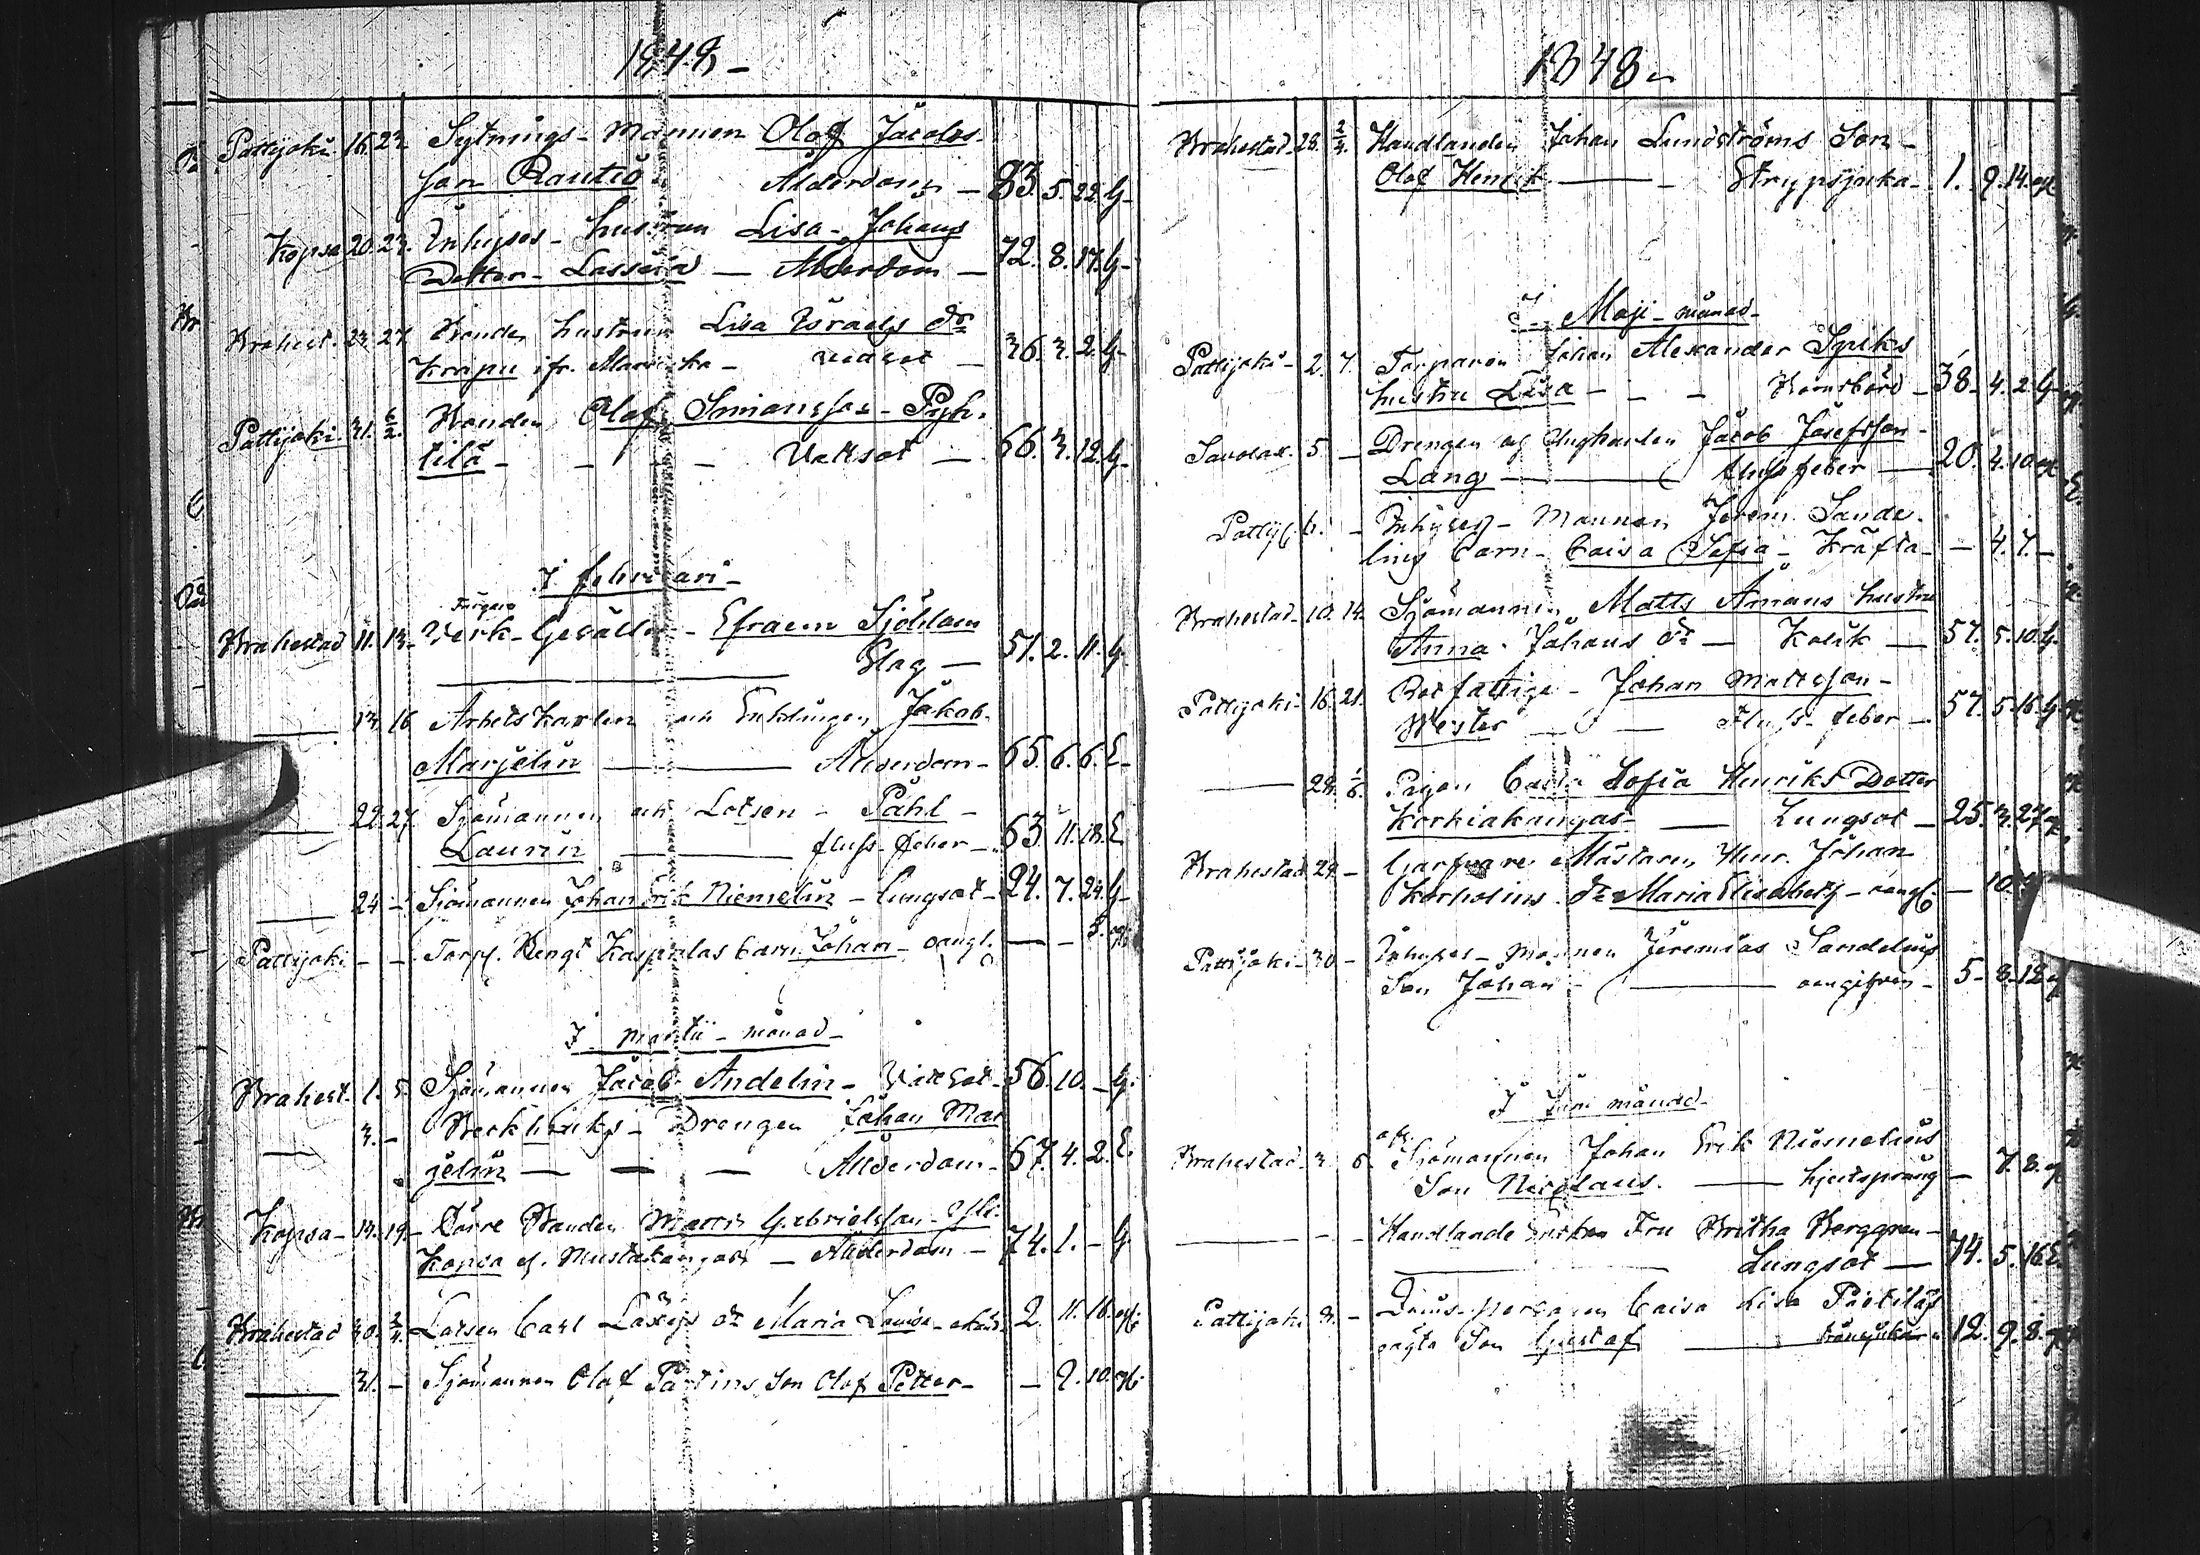 1848 -
Pattijoki 16. 23. Sytnings - Mannen Olof Jacobs-
son Rautio Ålderdom - 83. 5. 22. G-
Kopsa 20. 23. Inhyses - hustrun Lisa - Johans
Dotter - Lassila - Ålderdom - 72. 8. 17. G-
Brahest. 23. 27. Bonden hustrun Lisa Israels dr
Krapu ifr. - 36. 3. 2. G-
Pattijoki 31. 6/2. Bonden Olof Simonsson - Pyh-
tilä - - - - Vattsot - 66. 3. 12. G-
I februari -
Färgare
Brahestad 11. 13. Verk - Gesällen - Efraem Sjöblom
Slag - 51. 2. 11. G
13. 16 Arbetskarlen och Enklingen Jakob
Marjelin Ålderdom - 65. 6. 6. E-
22. 27. Sjömannen och Lotsen - Påhl -
Laurin fluss-feber - 63. 11. 18. E
24 - Sjömannen Johan Erik Niemelin - lungsot - 24. 7. 24. G-
Pattijoki - - Torp. Bengt Kaspalas barn Johan - oangf. - - 3.
I martii - månad -
Brahest. 1. 5. Sjömannen Jacob Andelin - Vattsot - 56. 10. - G.
3. - Beckbruks - Drengen Johan Mar
jelin - - - Ålderdom - 67. 4. 2. E.
Kopsa - 14. 19 - Förre Bonden Matts Gabrielsson
Kopsa Mustakangas - Ålderdom - 74. 1. - G
Brahestad 30. 2/4. Lotsen Carl dr Maria Lovisa - 2. 11. 16.
31. - Sjömannen Olof Son Olof Petter - - 2. 10.
1848 -
Brahestad - 28. 2/4. Handlanden Johan Lundströms Son -
Olof Henrik - Strypsjuka - 1. 9. 14.
I Maji - månad -
Pattijoki - 2. 7. Torparen Johan Alexander Spiks
hustru Lisa - - - Barnsbörd - 38. 4. 2. G
Savolax. 5 - Drengen og Ungkarlen Jacob Josefsson -
Lång fluss feber - 20. 4. 10.
Pattij. 6. - Inhyses - Mannen Jerem. Sande-
lins barn - Caisa Sofia - Kräfta - - 4. 7 -
Brahestad - 10. 14. Sjömannen Matts Åmans hustru
Anna Johans dr - Kolik - 57. 5. 10. G.
Pattijoki - 16. 21. Rotfattige - Johan Mattsson -
Wester - Fluss - feber - 57. 5. 16. G
28. 1/6. Pigan Caisa Sofia Henriks Dotter
Korkiakangas - Lungsot - 25. 3. 27
Brahestad 29 - Garfvare Mästaren Henr. Johan
Korholins dr Maria Elisabeth - oangf. - 10.
Pattijoki - 30 - Inhyses - Mannen Jeremias Sandelins
Son Johan - oangifven - 5 - 8 - 12
I Juni månad -
Brahestad - 3. 6. Sjömannen Johan Erik Niemelins
Son Nicolaus - hjertsprång - - 7. 8.
- - Handlande Enkan Fru Britha Berggren -
Lungsot - 74. 5. 16. E.
Pattijoki 3. - Caisa Lisa
ägta Son Gustaf 12. 9. 8.